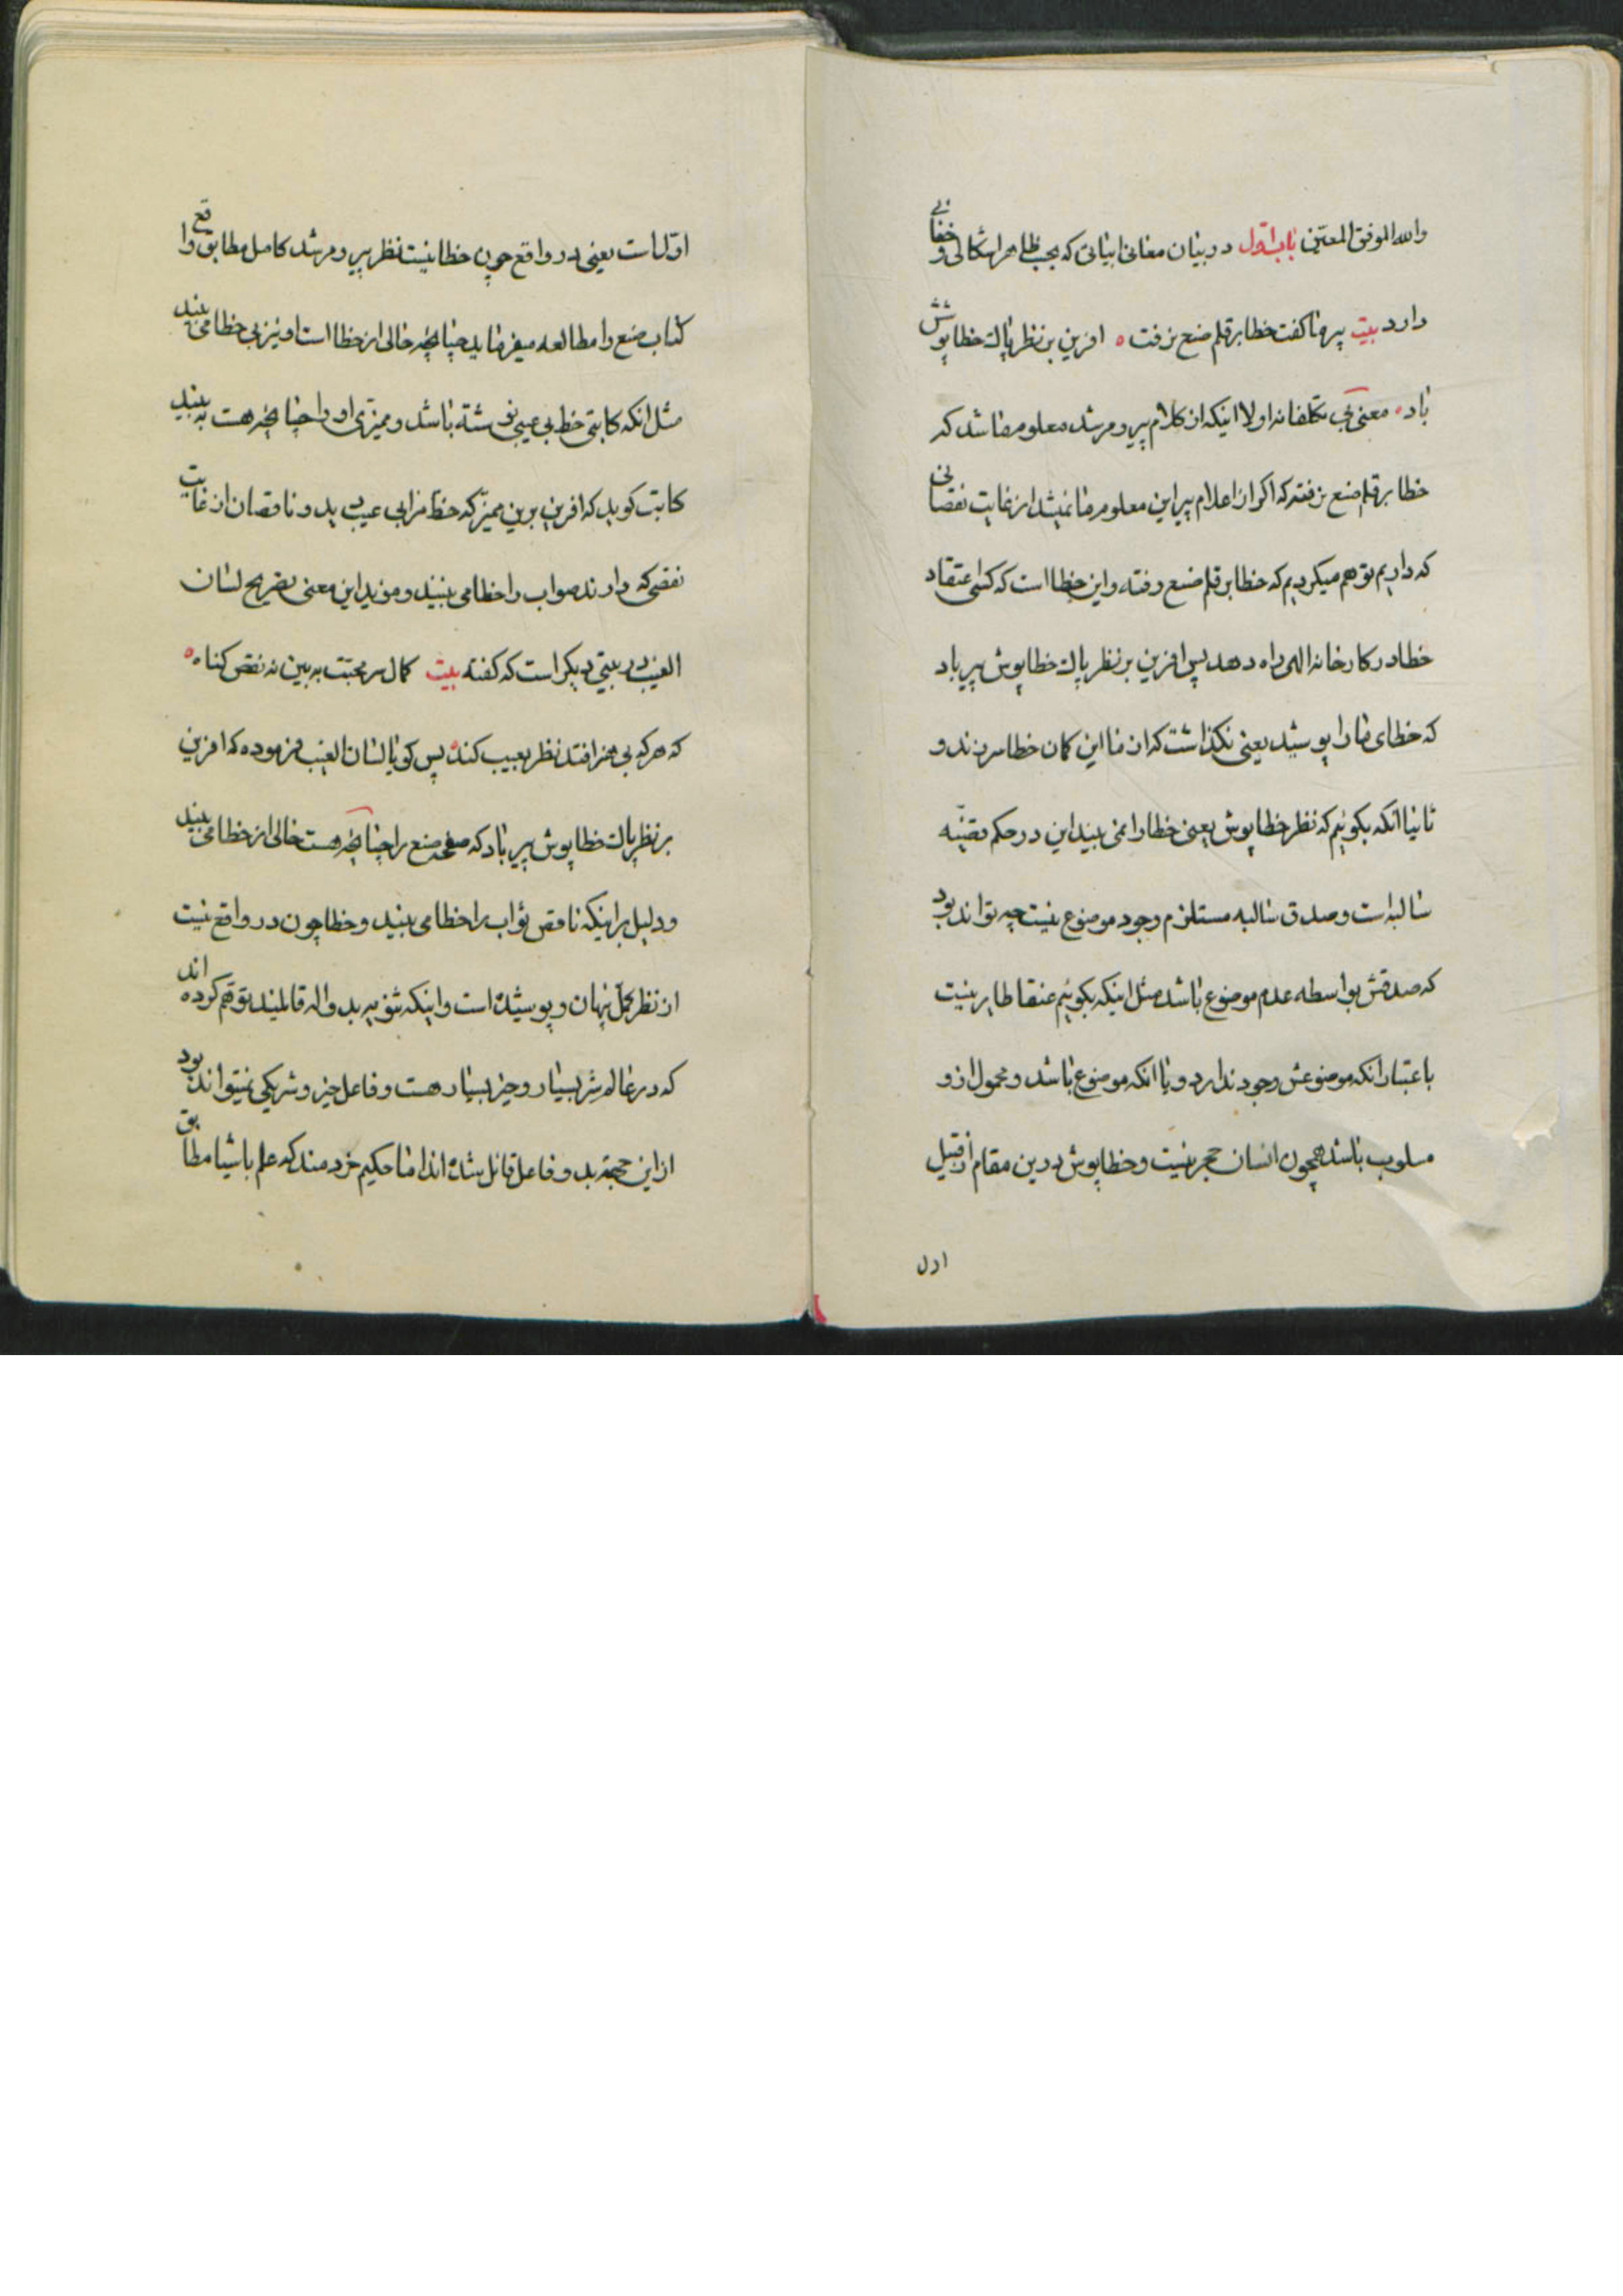 والله الموفق المعین باب اول در بیان معانی ابیاتی که بحسب ظاهر اشکالی و خفائی
دارد بیت پیر ما کفت خطا بر قلم صنع نرفت ه افرین بر نظر پاک خطا پوشش
باد ه معنی بی تکلفانه اولا اینکه از کلام پیر و مرشد معلوم ما شد که
خطا بر قلم صنع نرفته که اکر از اعلام پیر این معلوم ما نمیشد از غایت نقصانی
که داریم توهم میکردیم که خطا بر قلم صنع رفته و این خطا است که کسی اعتقاد
خطا در کارخانه الهی راه دهد پس افرین بر نظر پاک خطا پوش پیر باد
که خطای ما را پوشید یعنی نکذاشت که از ما این کمان خطا سر زند و
ثانیا انکه بکوئیم که نظر خطا پوش یعنی خطا را نمی بیند این در حکم قضیّه
سالبه است و صدق سالبه مستلزم وجود موضوع نیست چه تواند بود
که صدقش بواسطه عدم موضوع باشد مثل اینکه بکوئیم عنقا طایر نیست
باعتبار انکه موضوعش وجود ندارد و یا انکه موضوع باشد و محمول ازو
مسلوب باشد همچون انسان حجر نیست و خطا پوش درین مقام از قبیل
اول
اوّل است یعنی در واقع چون خطا نیست نظر پیر و مرشد کامل مطابق واقع
کتاب صنع را مطالعه میفرماید چنانچه خالی از خطا است او نیز بی خطا می بیند
مثل انکه کاتبی خط بی عیبی نوشته باشد و ممیزی او را چنانچه هست به بیند
کاتب کوید که افرین برین ممیّز که خط مرا بی عیب دید و ناقصان از غایت
نقصی که دارند صواب را خطا می بینند و موید این معنی تصریح لسان
الغیب در بیتی دیکر است که کفته بیت کمال سر محبّت به بین نه نقص کناه ه
که هر که بی هنر افتد نظر بعیب کند پس کویا لسان الغیب فرموده که افرین
بر نظر پاک خطا پوش پیر باد که صفحه صنع را چنانچه هست خالی از خطا می بیند
و دلیل بر اینکه ناقص ثواب را خطا می بیند و خطا چون در واقع نیست
از نظر کمّل پنهان و پوشیده است و اینکه ثنویه بد واله قایلیند توهّم کرده اند
که در عالم شر بسیار و خیر بسیار هست و فاعل خیر و شر یکی نمیتواند بود
از این حجّة بد و فاعل قائل شده اند اما حکیم خردمند که علم باشیا مطابق